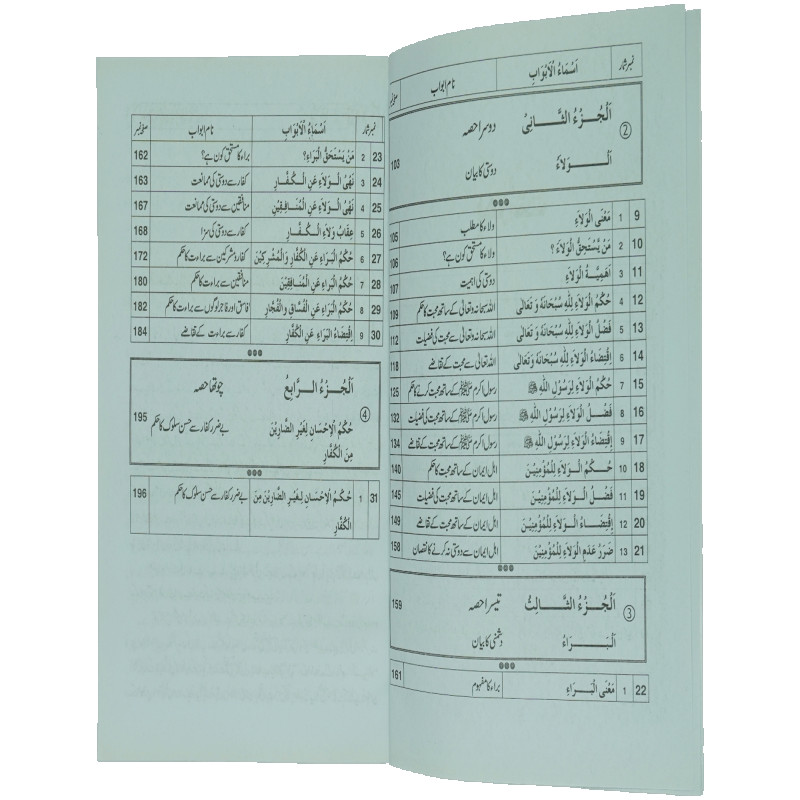 نمبر شمار اَسْمَاءُ الْاَبْوَابِ نام ابواب صفحہ نمبر
② اَلْجُزْءُ الثَّانِيْ دوسرا حصہ
اَلْوَلَاءُ دوستی کا بیان 103
9 1 مَعْنَى الْوَلَاءِ ولاء کا مطلب 105
10 2 مَنْ يَسْتَحِقُّ الْوَلَاءَ ؟ ولاء کا مستحق کون ہے؟ 106
11 3 اَهَمِيَّةُ الْوَلَاءِ دوستی کی اہمیت 107
12 4 حُكْمُ الْوَلَاءِ لِلّٰهِ سُبْحَانَهُ وَ تَعَالٰى اللہ سبحانہ وتعالیٰ کے ساتھ محبت کا حکم 109
13 5 فَضْلُ الْوَلَاءِ لِلّٰهِ سُبْحَانَهُ وَ تَعَالٰى اللہ سبحانہ وتعالیٰ سے محبت کی فضیلت 112
14 6 اِقْتِضَاءُ الْوَلَاءِ لِلّٰهِ سُبْحَانَهُ وَتَعَالٰى اللہ تعالیٰ سے محبت کے تقاضے 118
15 7 حُكْمُ الْوَلَاءِ لِرَسُوْلِ اللّٰهِ ﷺ رسول اکرم ﷺ کے ساتھ محبت کرنے کا حکم 125
16 8 فَضْلُ الْوَلَاءِ لِرَسُوْلِ اللّٰهِ ﷺ رسول اکرم ﷺ کے ساتھ محبت کی فضیلت 132
17 9 اِقْتِضَاءُ الْوَلَاءِ لِرَسُوْلِ اللّٰهِ ﷺ رسول اکرم ﷺ کے ساتھ محبت کے تقاضے 134
18 10 حُكْمُ الْوَلَاءِ لِلْمُؤْمِنِيْنَ اہل ایمان کے ساتھ محبت کا حکم 140
19 11 فَضْلُ الْوَلَاءِ لِلْمُؤْمِنِيْنَ اہل ایمان کے ساتھ محبت کی فضیلت 145
20 12 اِقْتِضَاءُ الْوَلَاءِ لِلْمُؤْمِنِيْنَ اہل ایمان کے ساتھ محبت کے تقاضے 149
21 13 ضَرَرُ عَدَمِ الْوَلَاءِ لِلْمُؤْمِنِيْنَ اہل ایمان سے دوستی نہ کرنے کا نقصان 158
③ اَلْجُزْءُ الثَّالِثُ تیسرا حصہ 159
اَلْبَرَاءُ دشمنی کا بیان
22 1 مَعْنَى الْبَرَاءِ براء کا مفہوم 161
نمبر شمار اَسْمَاءُ الْاَبْوَابِ نام ابواب صفحہ نمبر
23 2 مَنْ يَسْتَحِقُّ الْبَرَاءَ؟ براء کا مستحق کون ہے؟ 162
24 3 نَهْىُ الْوَلَاءِ عَنِ الْكُفَّارِ کفار سے دوستی کی ممانعت 163
25 4 نَهْىُ الْوَلَاءِ عَنِ الْمُنَافِقِيْنَ منافقین سے دوستی کی ممانعت 167
26 5 عِقَابُ وَلَاءِ الْكُفَّارِ کفار سے دوستی کی سزا 168
27 6 حُكْمُ الْبَرَاءِ عَنِ الْكُفَّارِ وَالْمُشْرِكِيْنَ کفار و مشرکین سے براءت کا حکم 172
28 7 حُكْمُ الْبَرَاءِ عَنِ الْمُنَافِقِيْنَ منافقین سے براءت کا حکم 180
29 8 حُكْمُ الْبَرَاءِ عَنِ الْفُسَّاقِ وَالْفُجَّارِ فاسق اور فاجر لوگوں سے براءت کا حکم 182
30 9 اِقْتِضَاءُ الْبَرَاءِ عَنِ الْكُفَّارِ کفار سے براءت کے تقاضے 184
④ اَلْجُزْءُ الرَّابِعُ چوتھا حصہ
حُكْمُ الْاِحْسَانِ لِغَيْرِ الضَّارِيْنَ بے ضرر کفار سے حسن سلوک کا حکم 195
مِنَ الْكُفَّارِ
31 1 حُكْمُ الْاِحْسَانِ لِغَيْرِ الضَّارِيْنَ مِنَ بے ضرر کفار سے حسن سلوک کا حکم 196
الْكُفَّارِ